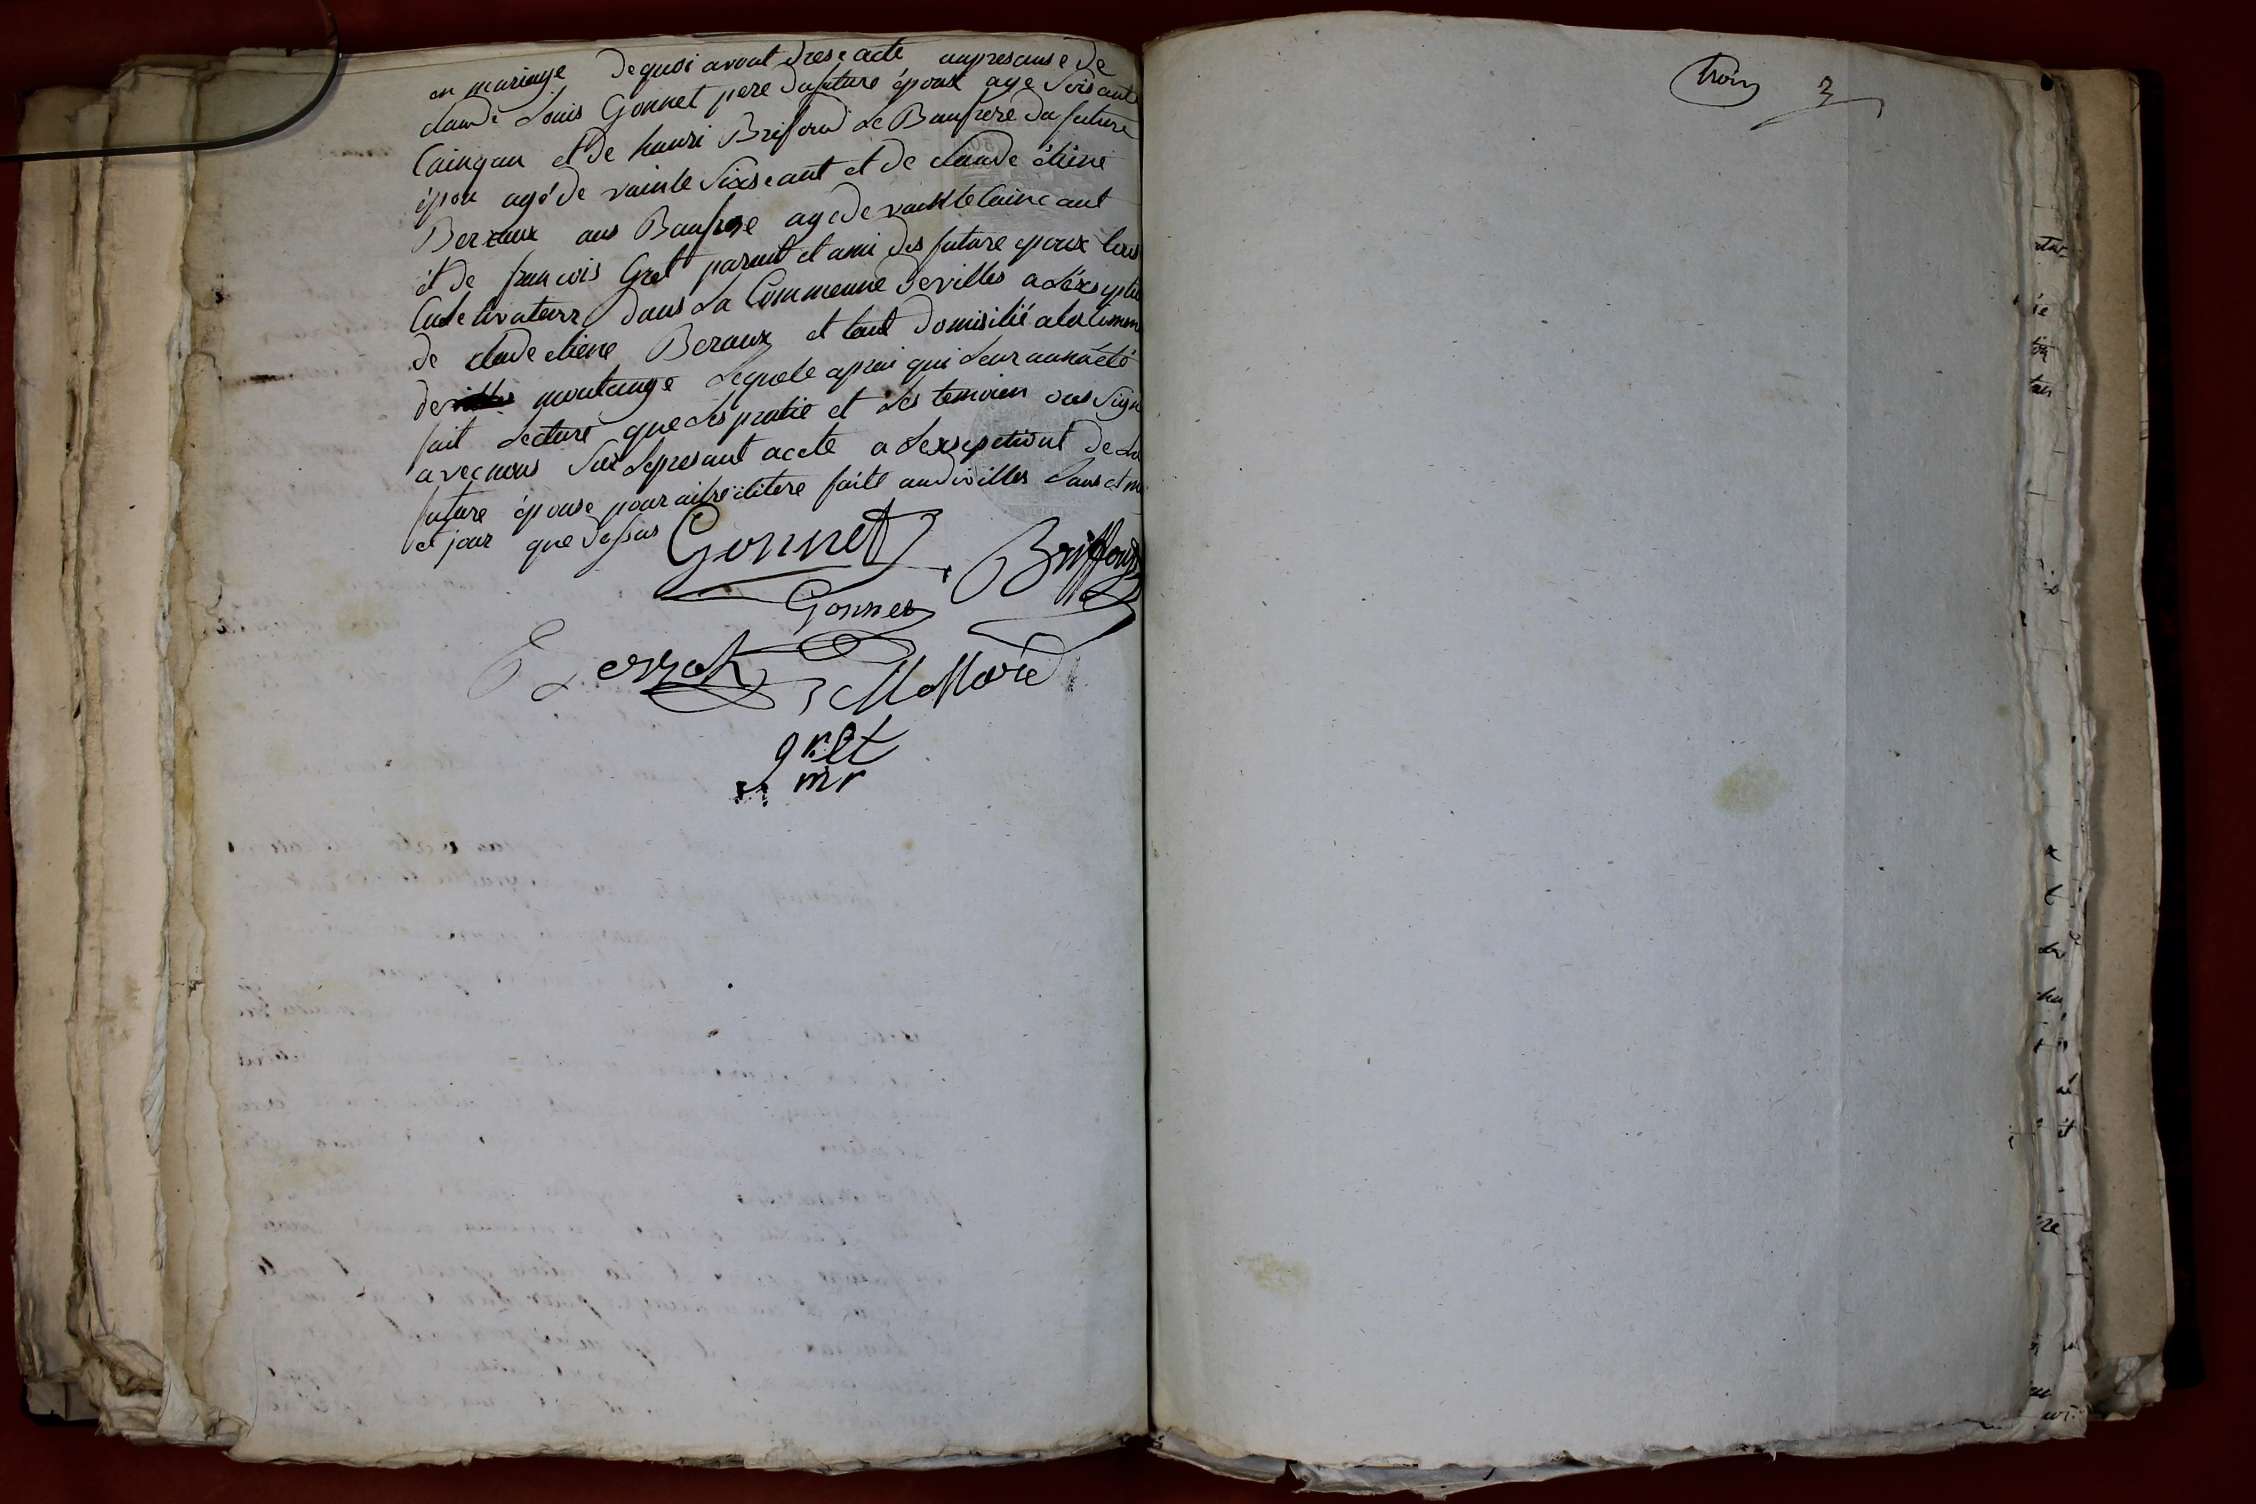 en mariage de quoi avont drese acte aupresanse de
claude Louis Gonnet pere du future époux age soisante
Cainq an et de hanri Brifoud Le Baufrere du future
épou agé de vainte sixseant et de claude étiene
Beraux aus Baufrere age de vainte cainc ant
et de francois Gret parant et ami des future epoux tous
Culetivateurs dans La Commeune devilles a Léxseptio
de claude etiene Beraux et tout domisilié ala Comun
de montange Lequele aprai qui Leur aunaété
fait Lecture que Les pratie et Les temoien ons Sign
avec nous sur Lepresant acete a Lexseptiont de La
future épouse pour aitre ilitere faite audivilles Lans et m
et jour que desus Gonnet Briffoud
Gonnet
gret
mr
trois 3